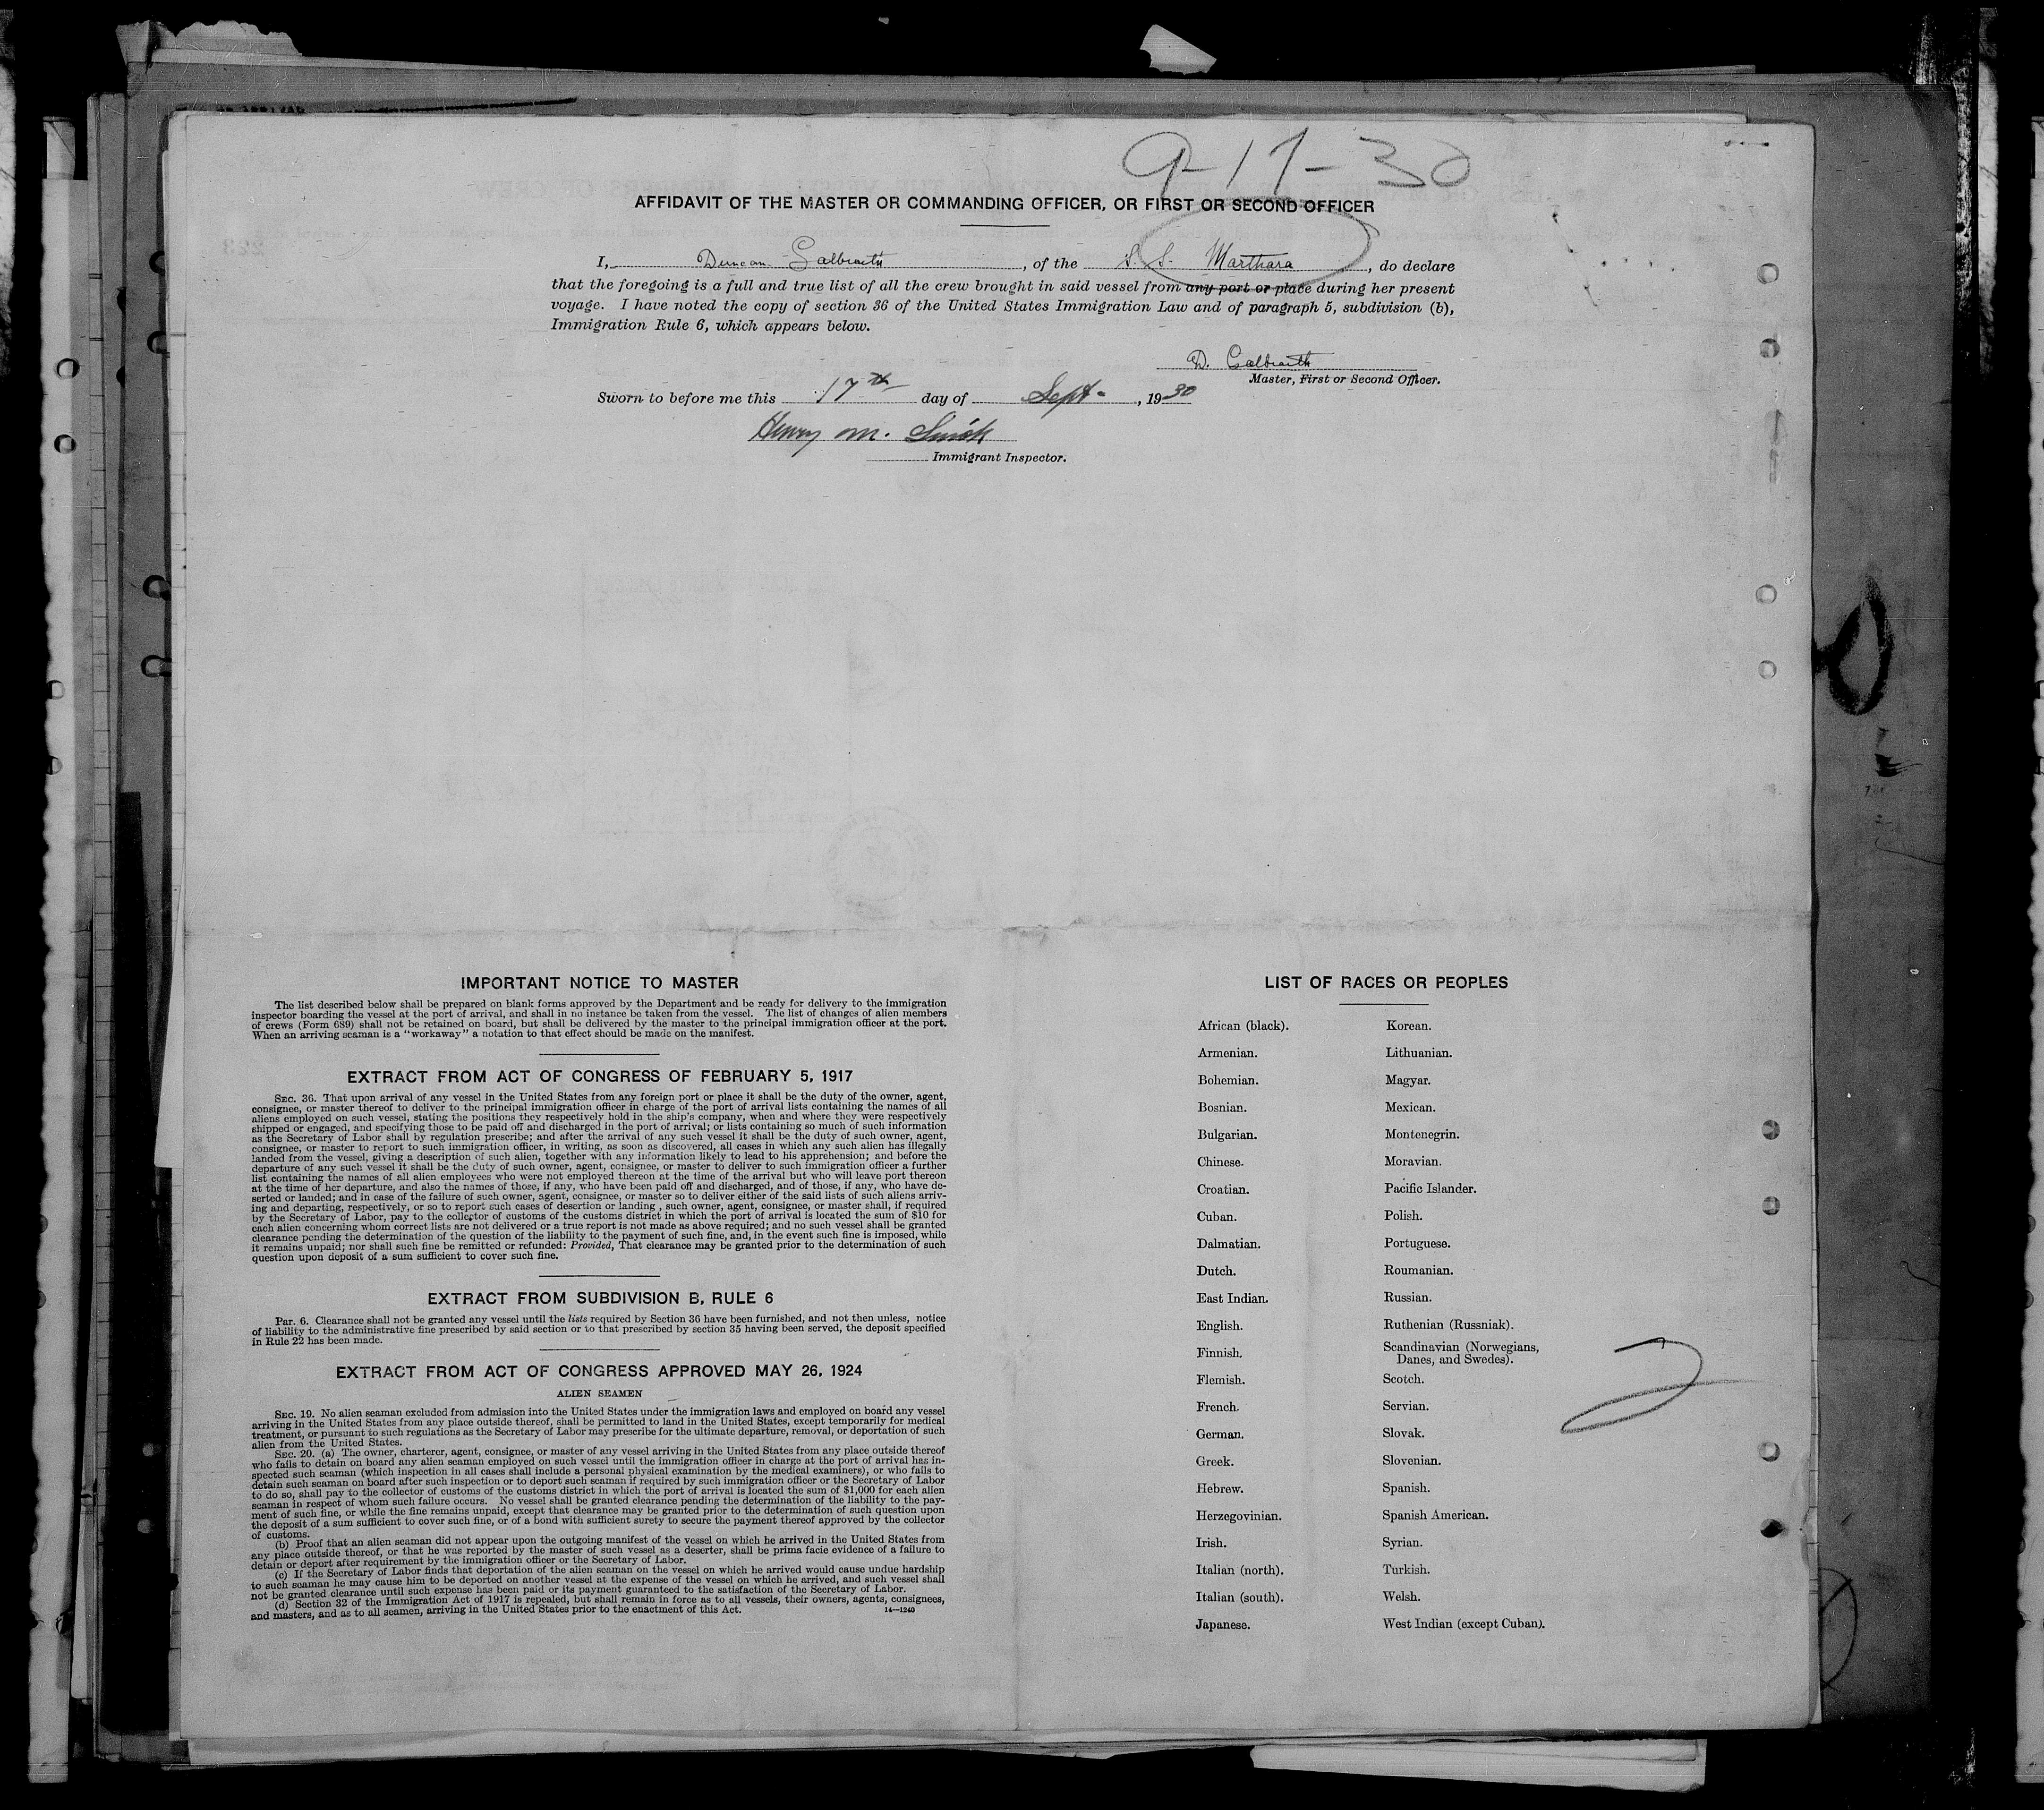 9-17-30
AFFIDAVIT OF THE MASTER OR COMMANDING OFFICER, OR FIRST OR SECOND OFFICER
I, Duncan Galbraith, of the S. S. Marthara, do declare
that the foregoing is a full and true list of all the crew brought in said vessel from any port or place during her present
voyage. I have noted the copy of section 36 of the United States Immigration Law and of paragraph 5, subdivision (b),
Immigration Rule 6, which appears below.
D. Galbraith
Master, First or Second Officer.
Sworn to before me this 17th day of Sept-, 1930
Henry M. Smith
Immigrant Inspector.
IMPORTANT NOTICE TO MASTER
The list described below shall be prepared on blank forms approved by the Department and be ready for delivery to the immigration
inspector boarding the vessel at the port of arrival, and shall in no instance be taken from the vessel. The list of changes of alien members
of crews (Form 689) shall not be retained on board, but shall be delivered by the master to the principal immigration officer at the port.
When an arriving seaman is a "workaway" a notation to that effect should be made on the manifest.
EXTRACT FROM ACT OF CONGRESS OF FEBRUARY 5, 1917
SEC. 36. That upon arrival of any vessel in the United States from any foreign port or place it shall be the duty of the owner, agent,
consignee, or master thereof to deliver to the principal immigration officer in charge of the port of arrival lists containing the names of all
aliens employed on such vessel, stating the positions they respectively hold in the ship's company, when and where they were respectively
shipped or engaged, and specifying those to be paid off and discharged in the port of arrival; or lists containing so much of such information
as the Secretary of Labor shall by regulation prescribe; and after the arrival of any such vessel it shall be the duty of such owner, agent,
consignee, or master to report to such immigration officer, in writing, as soon as discovered, all cases in which any such alien has illegally
landed from the vessel, giving a description of such alien, together with any information likely to lead to his apprehension; and before the
departure of any such vessel it shall be the duty of such owner, agent, consignee, or master to deliver to such immigration officer a further
list containing the names of all alien employees who were not employed thereon at the time of the arrival but who will leave port thereon
at the time of her departure, and also the names of those, if any, who have been paid off and discharged, and of those, if any, who have de-
serted or landed; and in case of the failure of such owner, agent, consignee, or master so to deliver either of the said lists of such aliens arriv-
ing and departing, respectively, or so to report such cases of desertion or landing, such owner, agent, consignee, or master shall, if required
by the Secretary of Labor, pay to the collector of customs of the customs district in which the port of arrival is located the sum of $10 for
each alien concerning whom correct lists are not delivered or a true report is not made as above required; and no such vessel shall be granted
clearance pending the determination of the question of the liability to the payment of such fine, and, in the event such fine is imposed, while
it remains unpaid; nor shall such fine be remitted or refunded: Provided, That clearance may be granted prior to the determination of such
question upon deposit of a sum sufficient to cover such fine.
EXTRACT FROM SUBDIVISION B, RULE 6
Par. 6. Clearance shall not be granted any vessel until the lists required by Section 36 have been furnished, and not then unless, notice
of liability to the administrative fine prescribed by said section or to that prescribed by section 35 having been served, the deposit specified
in Rule 22 has been made.
EXTRACT FROM ACT OF CONGRESS APPROVED MAY 26, 1924
ALIEN SEAMEN
SEC. 19. No alien seaman excluded from admission into the United States under the immigration laws and employed on board any vessel
arriving in the United States from any place outside thereof, shall be permitted to land in the United States, except temporarily for medical
treatment, or pursuant to such regulations as the Secretary of Labor may prescribe for the ultimate departure, removal, or deportation of such
alien from the United States.
SEC. 20. (a) The owner, charterer, agent, consignee, or master of any vessel arriving in the United States from any place outside thereof
who fails to detain on board any alien seaman employed on such vessel until the immigration officer in charge at the port of arrival has in-
spected such seaman (which inspection in all cases shall include a personal physical examination by the medical examiners), or who fails to
detain such seaman on board after such inspection or to deport such seaman if required by such immigration officer or the Secretary of Labor
to do so, shall pay to the collector of customs of the customs district in which the port of arrival is located the sum of $1,000 for each alien
seaman in respect of whom such failure occurs. No vessel shall be granted clearance pending the determination of the liability to the pay-
ment of such fine, or while the fine remains unpaid, except that clearance may be granted prior to the determination of such question upon
the deposit of a sum sufficient to cover such fine, or of a bond with sufficient surety to secure the payment thereof approved by the collector
of customs.
(b) Proof that an alien seaman did not appear upon the outgoing manifest of the vessel on which he arrived in the United States from
any place outside thereof, or that he was reported by the master of such vessel as a deserter, shall be prima facie evidence of a failure to
detain or deport after requirement by the immigration officer or the Secretary of Labor.
(c) If the Secretary of Labor finds that deportation of the alien seaman on the vessel on which he arrived would cause undue hardship
to such seaman he may cause him to be deported on another vessel at the expense of the vessel on which he arrived, and such vessel shall
not be granted clearance until such expense has been paid or its payment guaranteed to the satisfaction of the Secretary of Labor.
(d) Section 32 of the Immigration Act of 1917 is repealed, but shall remain in force as to all vessels, their owners, agents, consignees,
and masters, and as to all seamen, arriving in the United States prior to the enactment of this Act.
14—1240
LIST OF RACES OR PEOPLES
African (black).
Armenian.
Bohemian.
Bosnian.
Bulgarian.
Chinese.
Croatian.
Cuban.
Dalmatian.
Dutch.
East Indian.
English.
Finnish.
Flemish.
French.
German.
Greek.
Hebrew.
Herzegovinian.
Irish.
Italian (north).
Italian (south).
Japanese.
Korean.
Lithuanian.
Magyar.
Mexican.
Montenegrin.
Moravian.
Pacific Islander.
Polish.
Portuguese.
Roumanian.
Russian.
Ruthenian (Russniak).
Scandinavian (Norwegians,
Danes, and Swedes).
Scotch.
Servian.
Slovak.
Slovenian.
Spanish.
Spanish American.
Syrian.
Turkish.
Welsh.
West Indian (except Cuban).
2